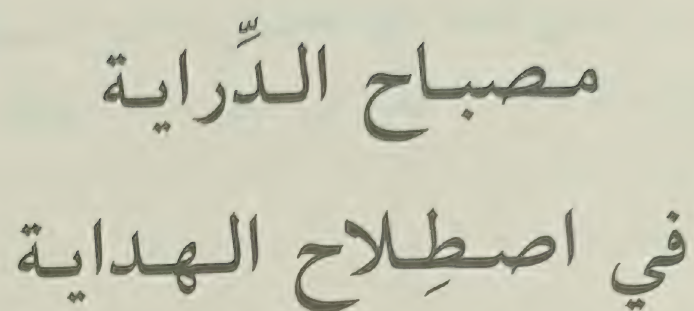 مصباح الدِّراية
في اصطِلاح الهداية